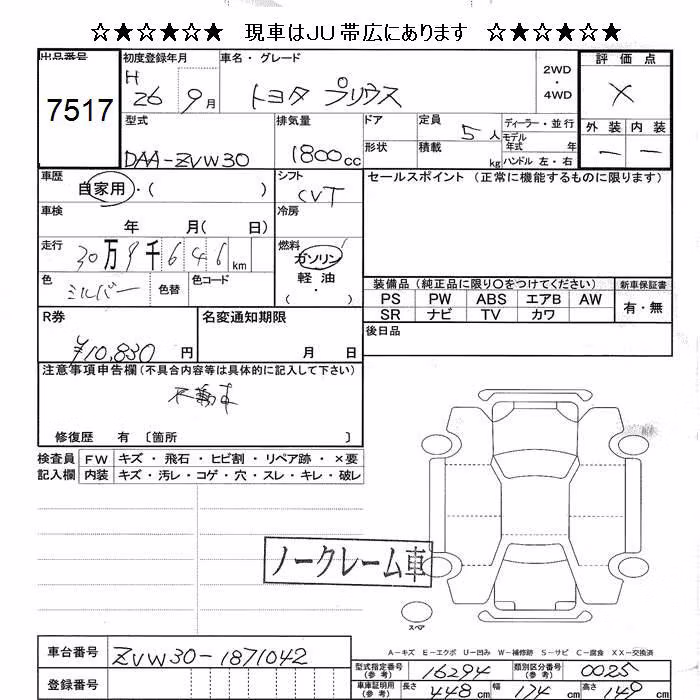 ☆★☆★☆★ 現車はJU帯広にあります ☆★☆★☆★
出品番号 初度登録年月 車名・グレード 2WD ・ 4WD 評価点
7517 H 26 9月 トヨタ プリウス X
型式 排気量 ドア 定員 5人 ディーラー・並行 外装 内装
DAA-ZVW30 1800cc 形状 積載 kg モデル年式 年 ハンドル 左・右 ー ー
車歴 自家用・( ) シフト CVT セールスポイント (正常に機能するものに限ります)
車検 年 月( 日) 冷房
走行 30万9千646km 燃料 ガソリン 軽油
色 シルバー 色替 色コード 装備品 (純正品に限り○をつけてください) 新車保証書
PS PW ABS エアB AW 有・無
SR ナビ TV カワ
R券 名変通知期限 後日品
¥10,830円 月 日
注意事項申告欄(不具合内容等は具体的に記入して下さい)
不動車
修復歴 有 〔箇所 〕
検査員 FW キズ・飛石・ヒビ割・リペア跡・×要
記入欄 内装 キズ・汚レ・コゲ・穴・スレ・キレ・破レ
ノークレーム車
スペア
A-キズ E-エクボ U-凹み W-補修跡 S-サビ C-腐食 XX-交換済
車台番号 ZVW30-1871042 型式指定番号(参考) 16294 類別区分番号(参考) 0025
登録番号 車車証明用(参考) 長さ 448cm 幅 174cm 高さ 149cm